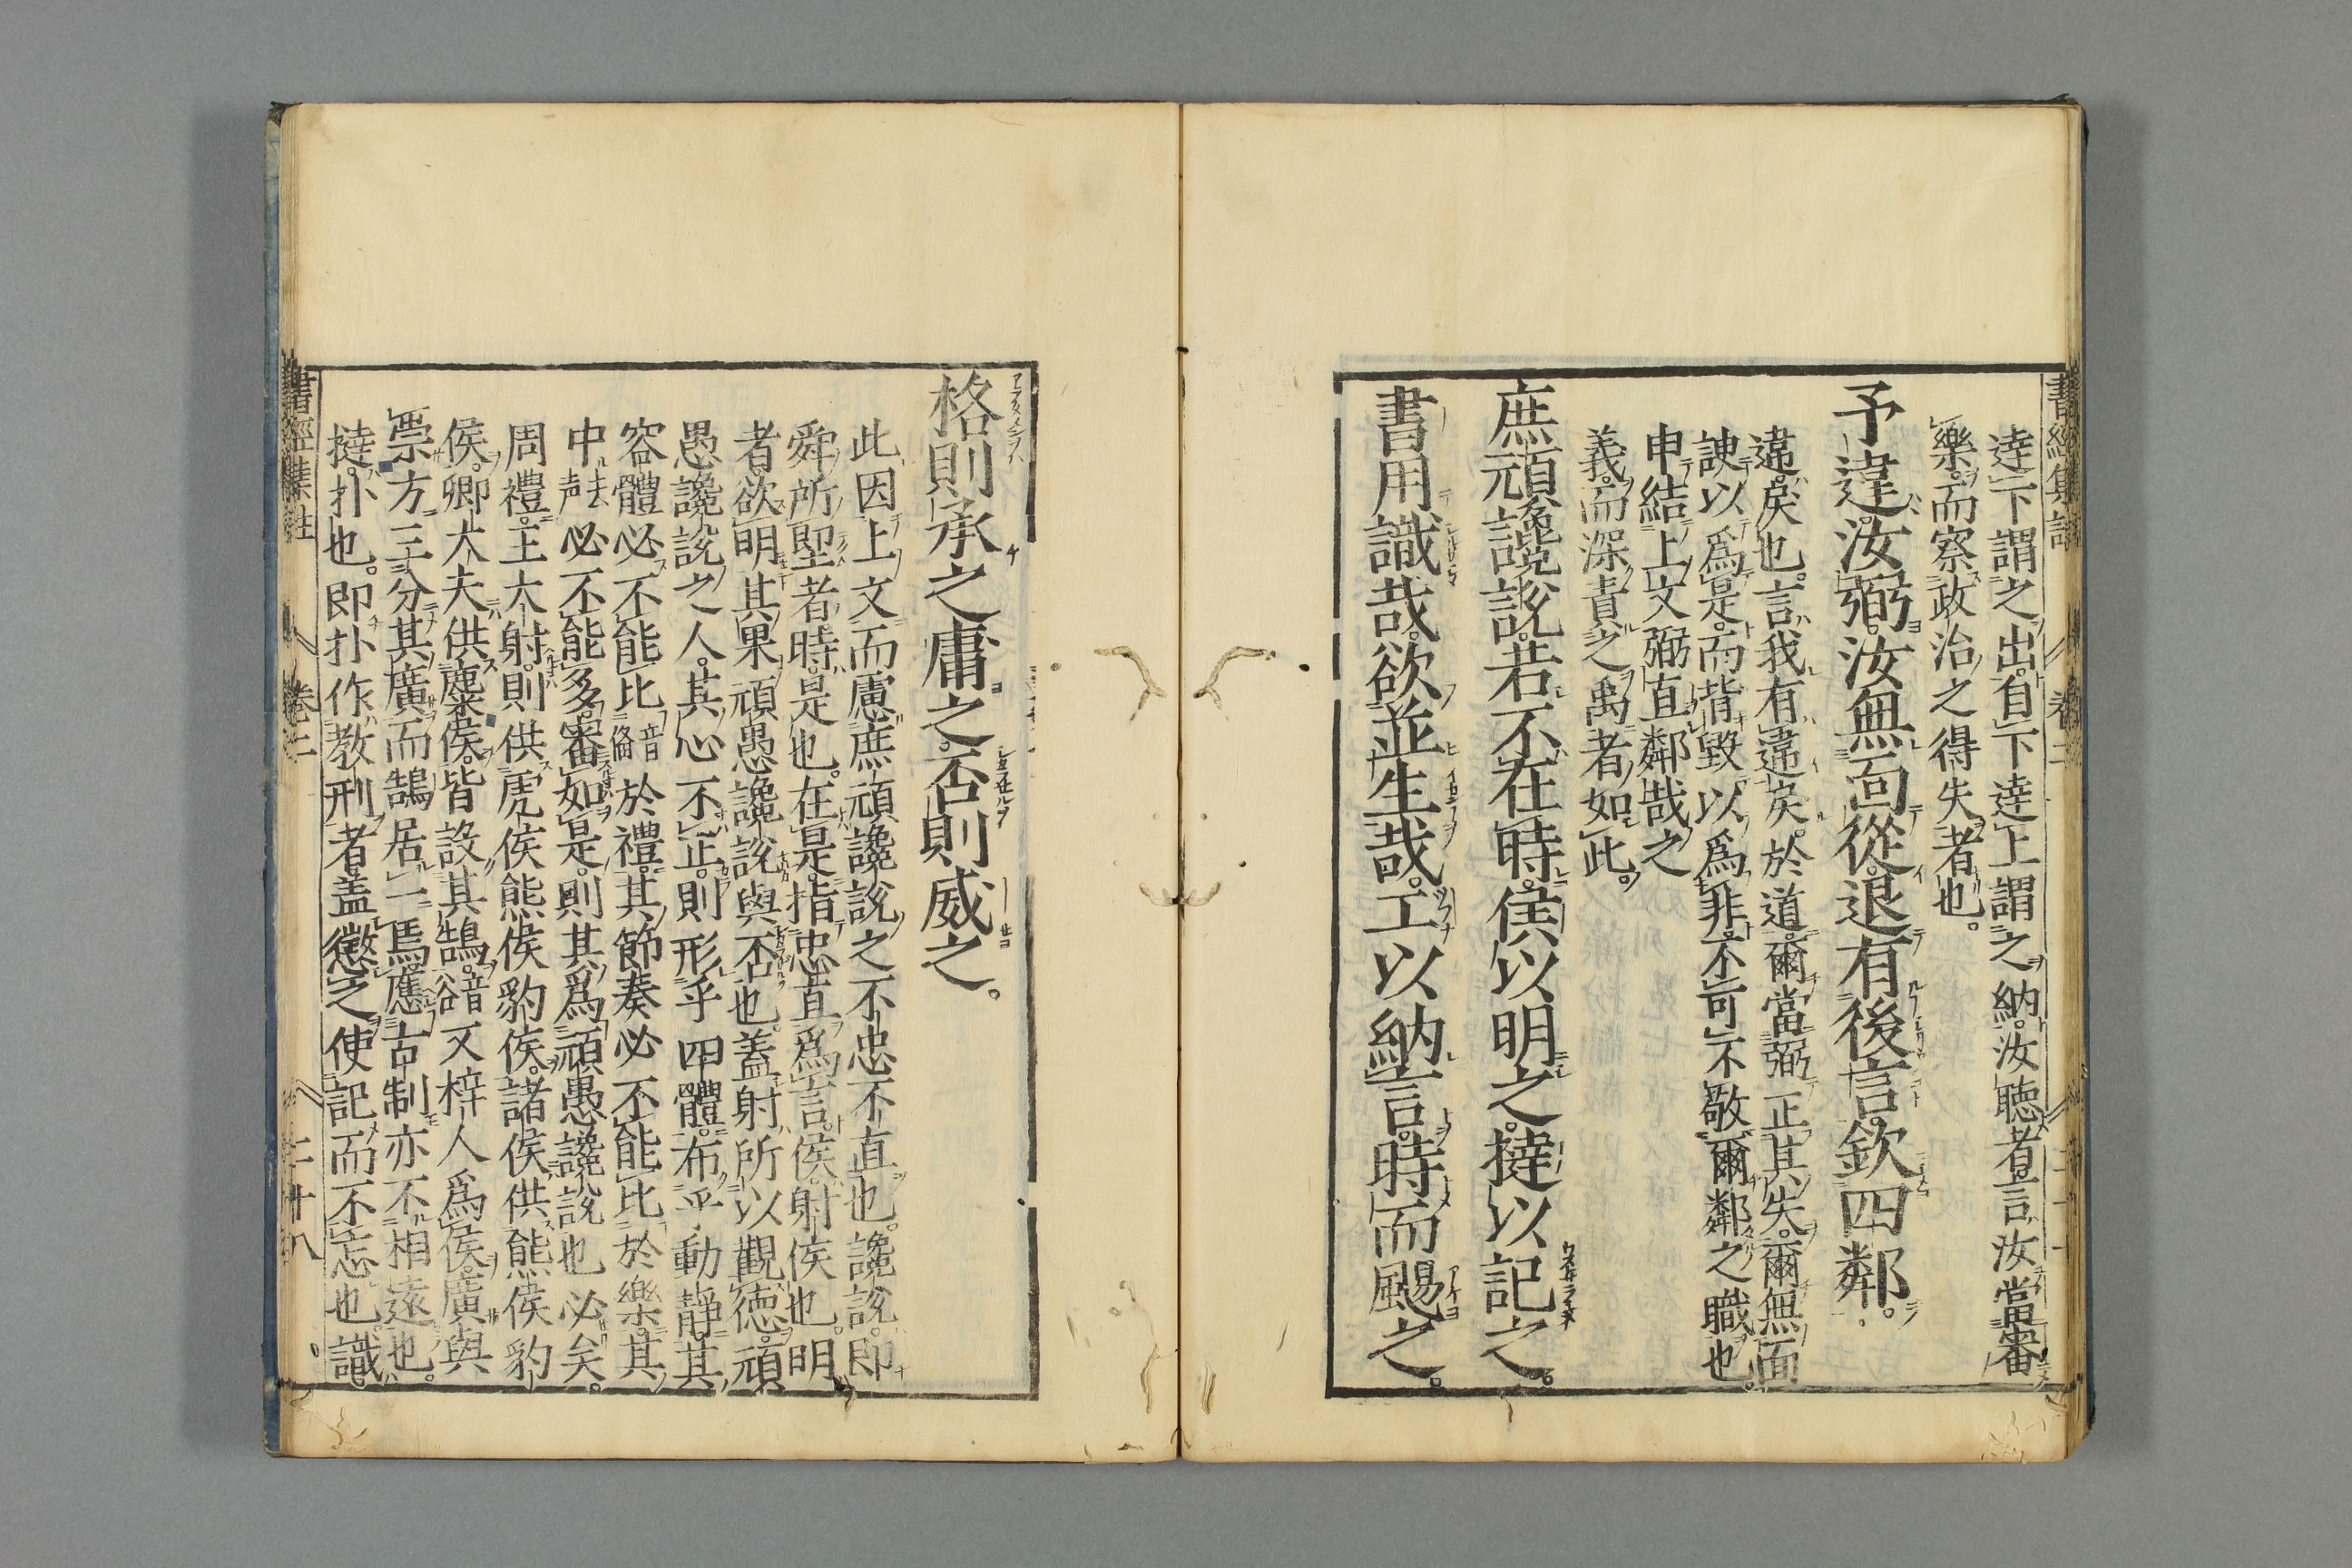 達下謂之出自下達上謂之納汝聽者言汝當審
樂而察政治之得失者也。
予違汝弼汝無面從退有後言欽四鄰。
違戾也。言我有違戾於道爾當弼正其失爾無面
諛以爲是而背毀以爲非不可不敬爾鄰之職也。
申結上文弼直鄰哉之
義而深責之禹者如此。
庶頑讒說若不在時侯以明之撻以記之。
書用識哉欲並生哉工以納言時而颺之。
格則承之庸之否則威之。
此因上文而慮庶頑讒說之不忠不直也。讒說即
舜所堲者時是也。在是指忠直爲言侯射侯也。明
者欲明其果頑愚讒說與否也。蓋射所以觀德頑
愚讒說之人其心不正則形乎四體布乎動靜其
容體必不能比音偹於禮其節奏必不能比於樂其
中去声必不能多審如是則其爲頑愚讒說也必矣。
周禮王大射則供虎侯熊侯豹侯諸侯供熊侯豹
侯卿大夫供麋侯皆設其鵠音谷又梓人爲侯廣與
崇方三分其廣而鵠居一焉應古制亦不相遠也。
撻扑也。即扑作教刑者蓋懲之使記而不忘也識
書經集註 卷二 二十八